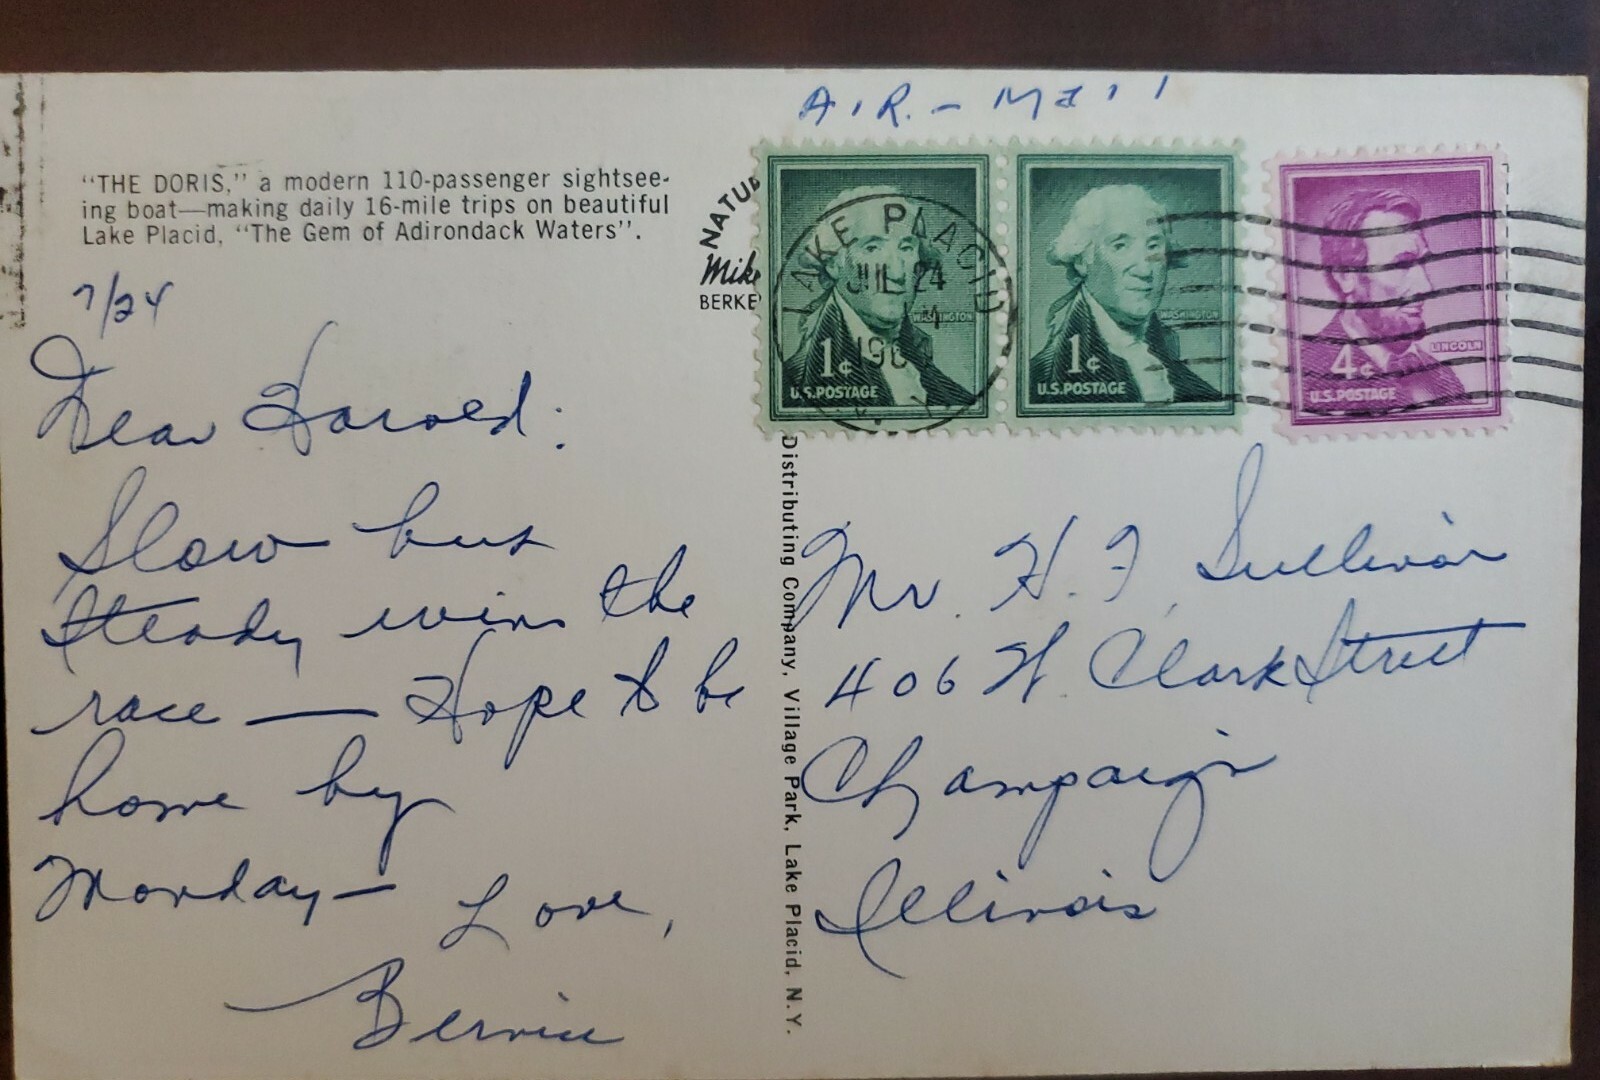 AIR-Mail
"THE DORIS," a modern 110-passenger sightsee-
ing boat—making daily 16-mile trips on beautiful
Lake Placid, "The Gem of Adirondack Waters".
NATU
Mike
BERKE
LAKE PLACID
JUL 24
4
196
N.Y.
WASHINGTON
1¢
U.S. POSTAGE
WASHINGTON
1¢
U.S. POSTAGE
LINCOLN
4¢
U.S. POSTAGE
7/24
Dear Harold:
Slow but
steady wins the
race — Hope to be
home by
Monday —
Love,
Bernice
Distributing Company, Village Park, Lake Placid, N.Y.
Mr. H. F. Sullivan
406 W. Clark Street
Champaign
Illinois